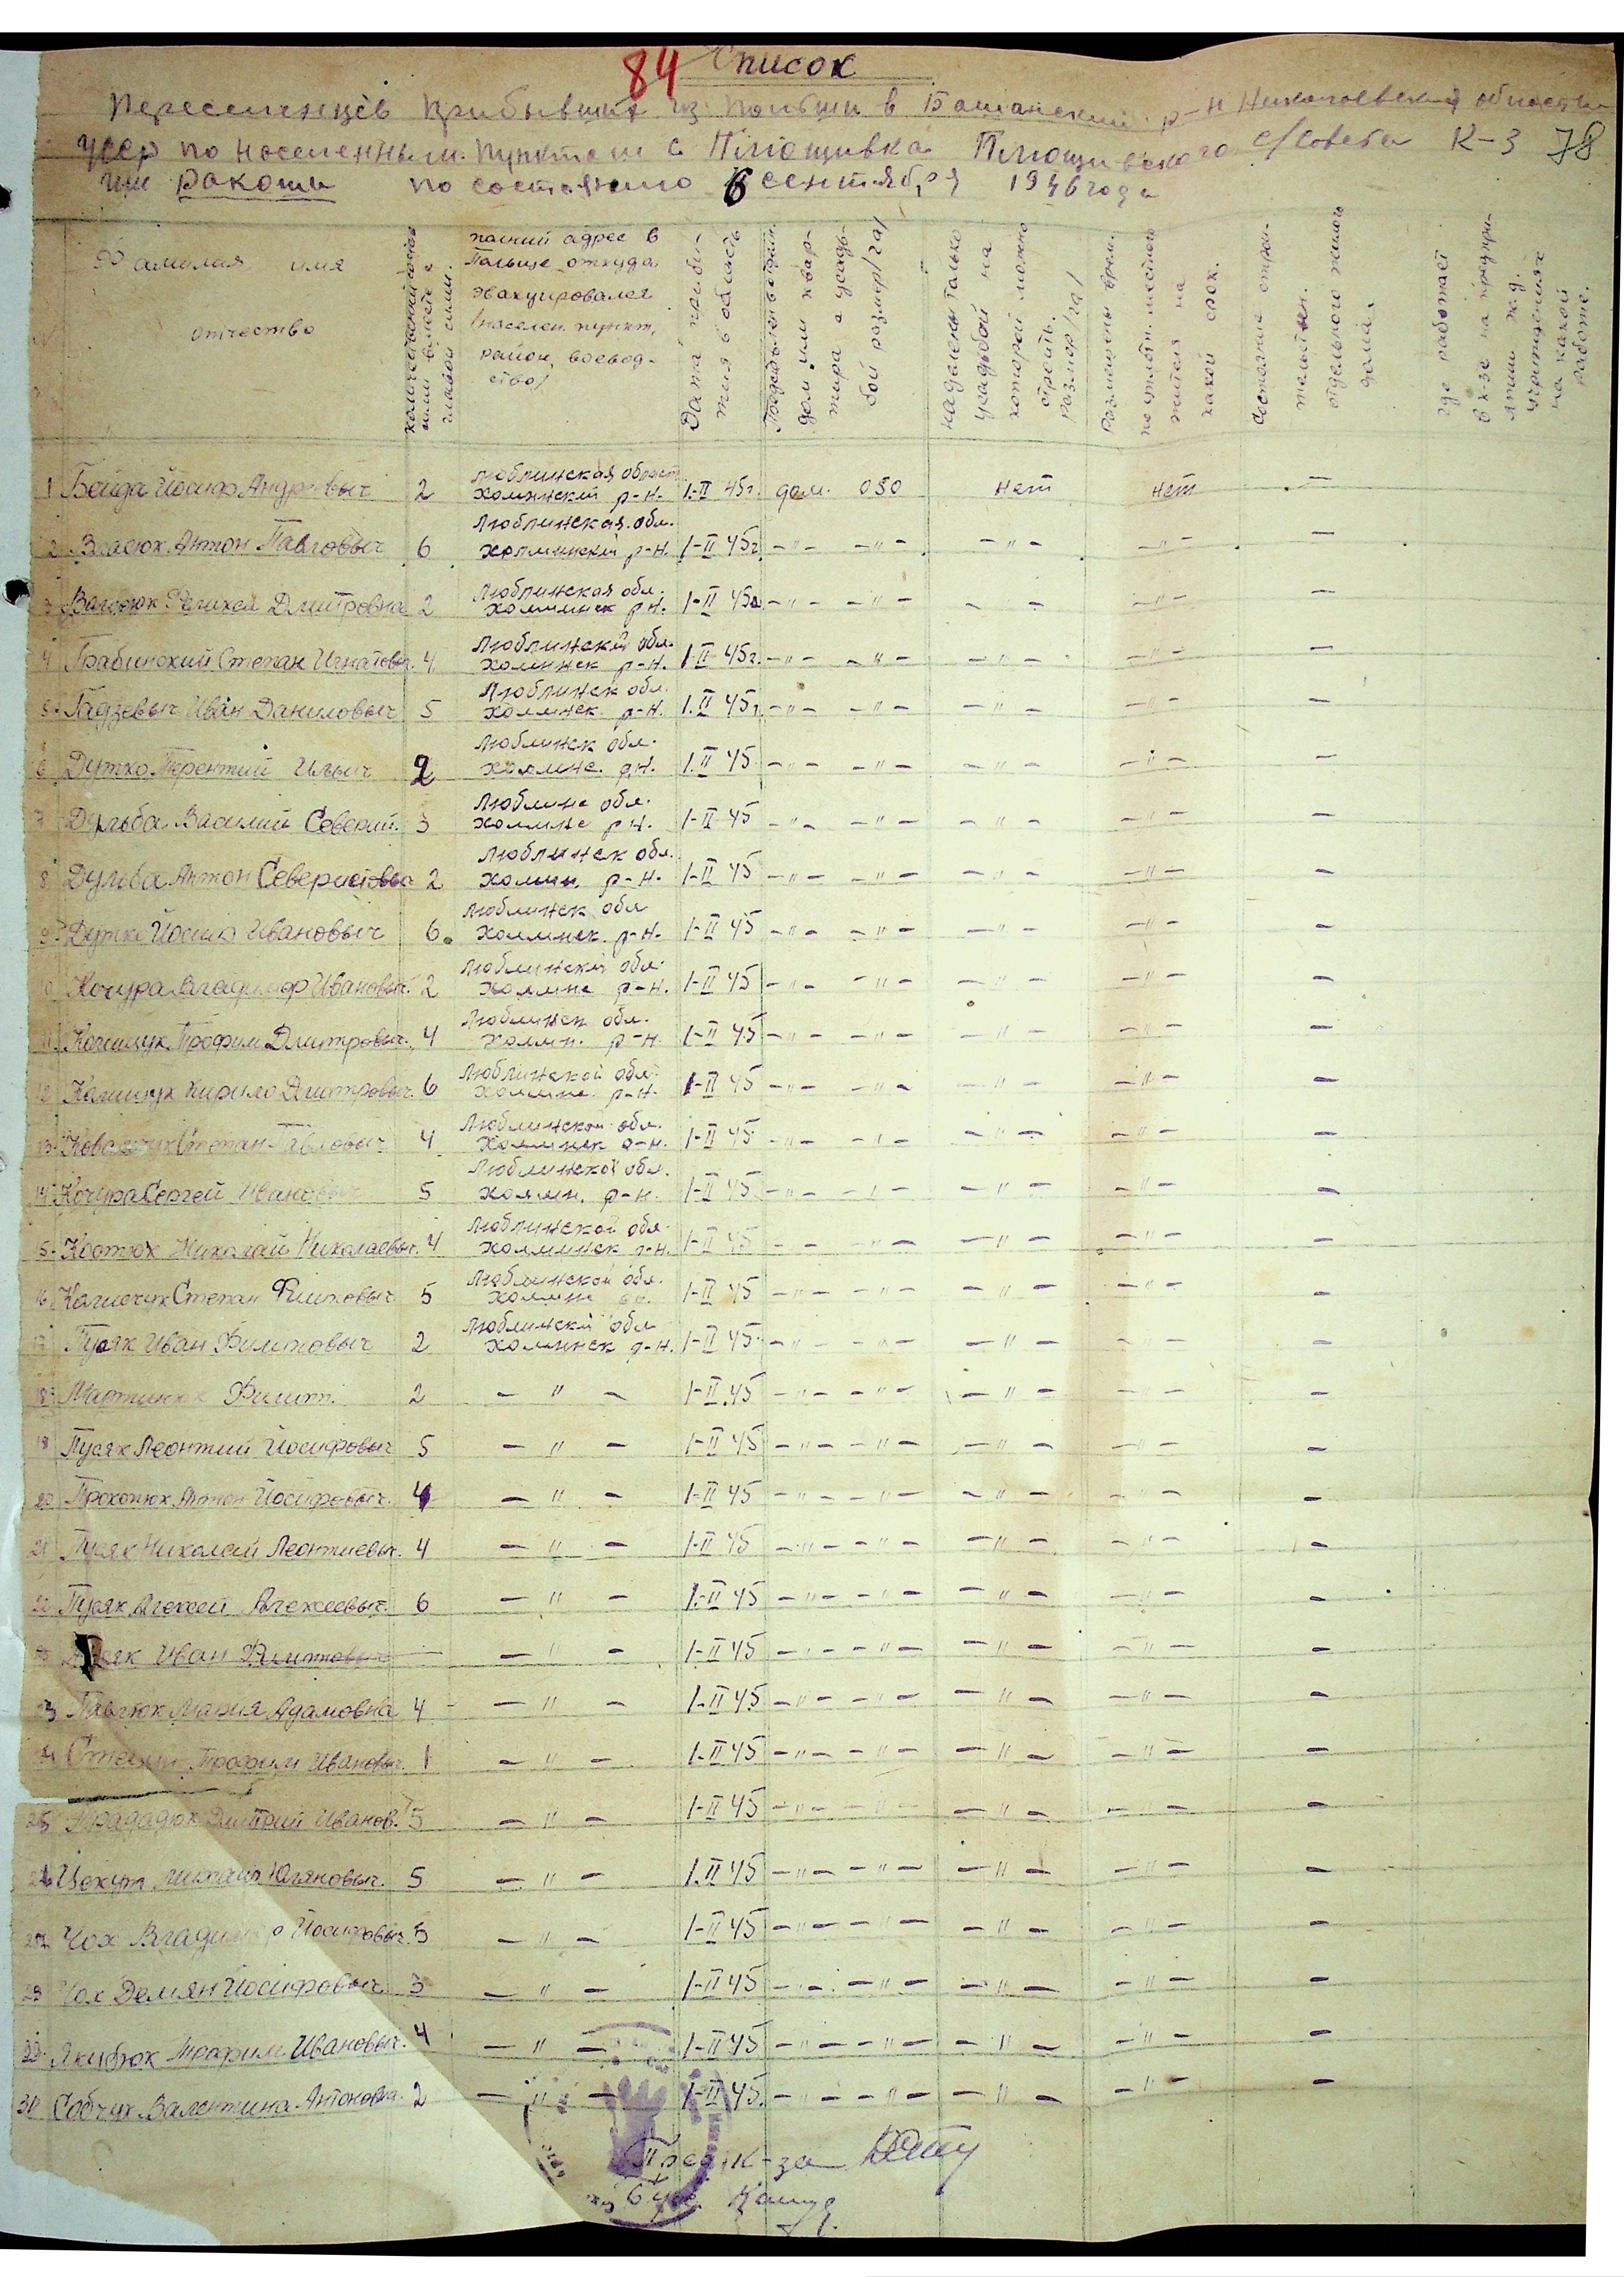 84 Список
Переселенцев прибывших из Польши в Баштанский р-н Николаевский области
УССР по населенным пунктам с Плющивка Плющивского с/Совета К-З 78
им Ракоши по состоянию 6 сентября 1946 года
Фамилия имя отчество
количество
вместе с главой семи.
полний адрес в Польще откуда эвакуировался /населен. пункт, район, воевод-ство/
Дата прибы-тия в область
дом или квар-тира а усадь-бой размер/га/
наделены только усадьбой на которой можно строить. размер/га/
Размещены врем.
местного жителя на какой срок.
Состояние строи-тельствен. отдельного жилого дома.
где работает в к-зе на предпри-ятии ж.д. учреждениях на какой работе.
1 Бойда Йосиф Андр вич 2 Люблинская област Холмнский р-н. 1-II 45г. дом. 050 нет нет —
2 Власюк Антон Павлович 6 Люблинская обл. Холминский р-н. 1-II 45г -"- -"- -"- -"- —
3 Власюк Дмитровна 2 Люблинская обл. Холминск р-н. 1-II 45г -"- -"- - - -"- —
4 Грабинский Степан Игнатовч. 4 Люблинской обл. Холмнск р-н. 1-II 45г. -"- -"- -"- -"- —
5 Гадзевыч Иван Данилович 5 Люблинск обл. Холмнск. р-н. 1.II 45г. -"- -"- -"- -"- —
6 Дутко Терентий Ильич 2 Люблинск обл. Холмнс. р.н. 1.II 45 -"- -"- -"- -"- —
7 Дульба Василий Северин. 3 Люблинс обл. Холмнс р-н. 1-II 45 -"- -"- -"- -"- —
8 Дульба Антон 2 Люблинск обл. Холмн. р-н. 1-II 45 -"- -"- -"- -"- —
9 Дутко Йосип Ивановыч 6 Люблинск обл Холмнск. р-н. 1-II 45 -"- -"- -"- -"- —
10 Кочура Владимир Ивановыч. 2 Люблинской обл. Холмнс р-н. 1-II 45 -"- -"- -"- -"- —
11 Трофим Дмитровыч. 4 Люблинск обл. Холмн. р-н. 1-II 45 -"- -"- -"- -"- —
12 Кирило Дмитровыч. 6 Люблинской обл. Холмнс. р-н. 1-II 45 -"- -"- -"- -"- —
13 Ковальчук Степан Павловыч 4 Люблинской обл. Холмнск р-н. 1-II 45 -"- -"- -"- -"- —
14 Кочура Сергей Ивановыч 5 Люблинской обл. Холмн. р-н. 1-II 45 -"- -"- -"- -"- —
15 Костюк Николай Николаевыч. 4 Люблинской обл. Холмнск р-н. 1-II 45 -"- -"- -"- -"- —
16 Степан Филиповыч 5 Люблинской обл. Холмнс 1-II 45 -"- -"- -"- -"- —
17 Пусяк Иван Филиповыч 2 Люблинской обл Холмнск р-н. 1-II 45 -"- -"- -"- -"- —
18 Мартинюк Филип. 2 - " - 1-II.45 -"- -"- -"- -"- —
19 Пусяк Леонтий Йосифовыч 5 - " - 1-II 45 -"- -"- -"- -"- —
20 Прокопюк Антон Йосифовыч. 4 - " - 1-II 45 -"- -"- -"- - - —
21 Пусяк Николай Леонтиевыч. 4 - " - 1-II 45 -"- -"- -"- -"- —
22 Пусяк Алексей Алексеевыч. 6 - " - 1-II 45 -"- -"- -"- -"- —
Пусяк Иван Филиповыч — - " - 1-II 45 -"- -"- -"- -"- —
23 Павлюк Мария Адамовна 4 - " - 1-II 45 -"- -"- -"- -"- —
24 Трофим Ивановыч. 1 - " - 1-II 45 -"- -"- -"- -"- —
25 Дмитрий Иванов. 5 - " - 1-II 45 -"- -"- -"- -"- —
26 5 - " - 1.II 45 -"- -"- -"- -"- —
27 Чох Владимир Йосифовыч. 5 - " - 1-II 45 -"- -"- -"- -"- —
28 Чох Демян Йосифовыч 3 - " - 1-II 45 -"- -"- -"- -"- —
29 Якубюк Ивановыч. 4 - " - 1-II 45 -"- -"- -"- -"- —
30 Собчук Валентина Антоновна. 2 - " - 1-II 45. -"- -"- -"- -"- —
Пред. к-за